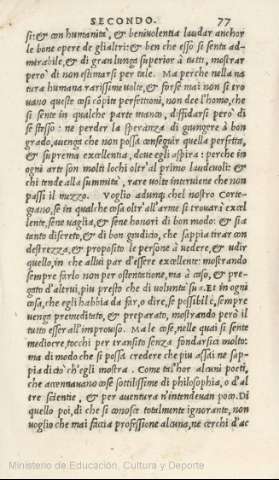 SECONDO. 77
si: & con humanità, & beniuolentia laudar anchor
le bone opere de glialtri: & ben che esso si senta ad-
mirabile, & di gran lunga superior à tutti, mostrar
però di non estimarsi per tale. Ma perche nella na
tura humana rarissime uolte, & forse mai non si tro
uano queste cosi cōpite perfettioni, non dee l'homo, che
si sente in qualche parte manco, diffidarsi però di
se stesso: ne perder la speranza di giungere à bon
grado, auenga che non possa conseguir quella perfetta,
& suprema excellentia, doue egli aspira: perche in
ogni arte son molti lochi oltr'al primo laudeuoli: &
chi tende alla summità, rare uolte interuiene che non
passi il mezzo. Voglio adunq; chel nostro Corte-
giano, se in qualche cosa oltr'all'arme si trouarà excel
lente, sene uaglia, & sene honori di bon modo: & sia
tanto discreto, & di bon giudicio, che sappia tirar con
destrezza, & proposito le persone à uedere, & udir
quello, in che allui par d'essere excellente: mostrando
sempre farlo non per ostentatione, ma à caso, & pre-
gato d'altrui, piu presto che di uolunta sua. Et in ogni
cosa, che egli habbia da far, o dire, se possibil è, sempre
uenga premeditato, & preparato, mostrando però il
tutto esser all'improuiso. Ma le cose, nelle quai si sente
mediocre, tocchi per transito senza fondarsici molto:
ma di modo che si possa credere che piu assai ne sap-
pia di ciò ch'egli mostra. Come talhor alcuni poeti,
che accennauano cose sottilissime di philosophia, o d'al
tre scientie, & per auentura n'intendeuan poco. Di
quello poi, di che si conosce totalmente ignorante, non
uoglio che mai faccia professione alcuna, ne cerchi d'ac
Ministerio de Educación, Cultura y Deporte